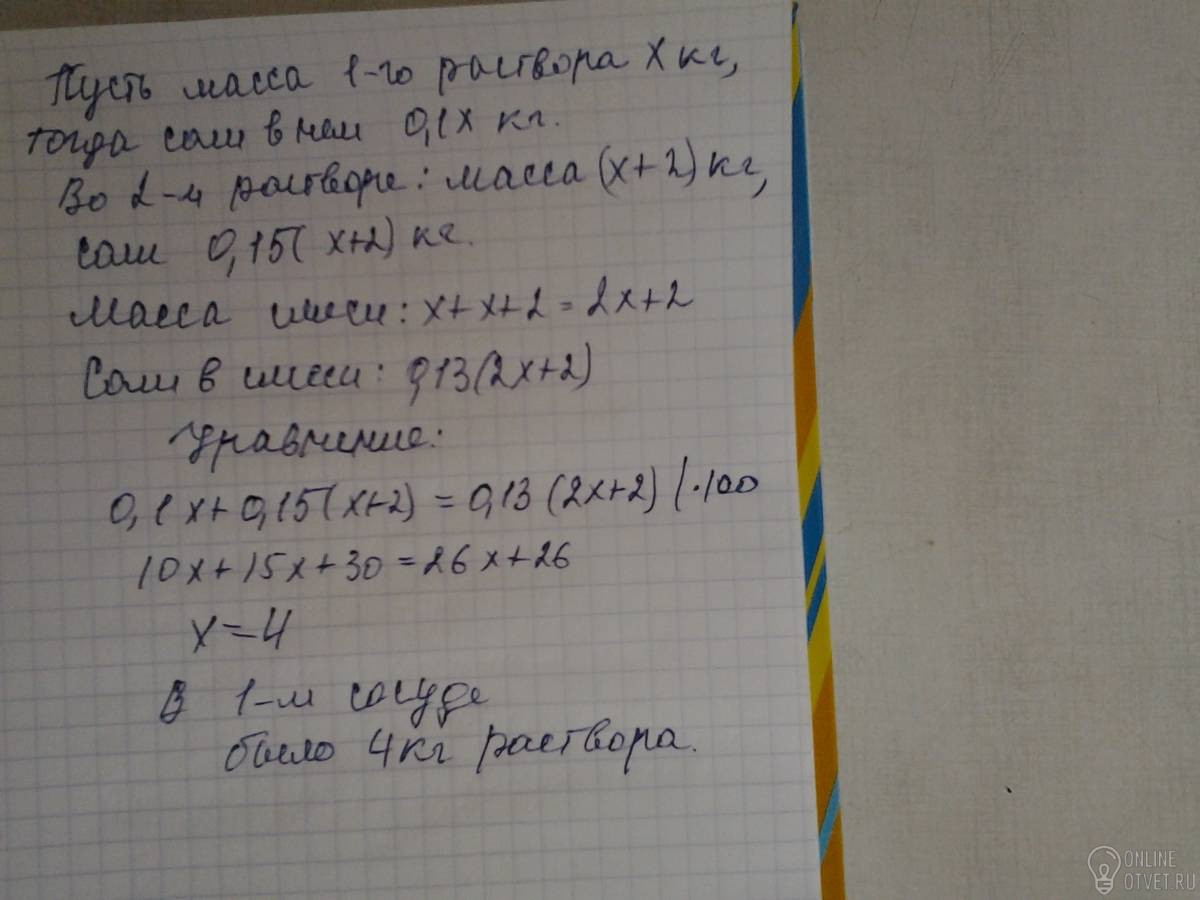 Пусть масса 1-го раствора x кг,
тогда соли в нем 0,1x кг.
Во 2-м растворе: масса (x+2) кг,
соли 0,15(x+2) кг.
Масса смеси: x+x+2=2x+2
Соли в смеси: 0,13(2x+2)
Уравнение:
0,1x+0,15(x+2)=0,13(2x+2) |·100
10x+15x+30=26x+26
x=4
В 1-м сосуде
было 4кг раствора.
ONLINE
OTVET.RU